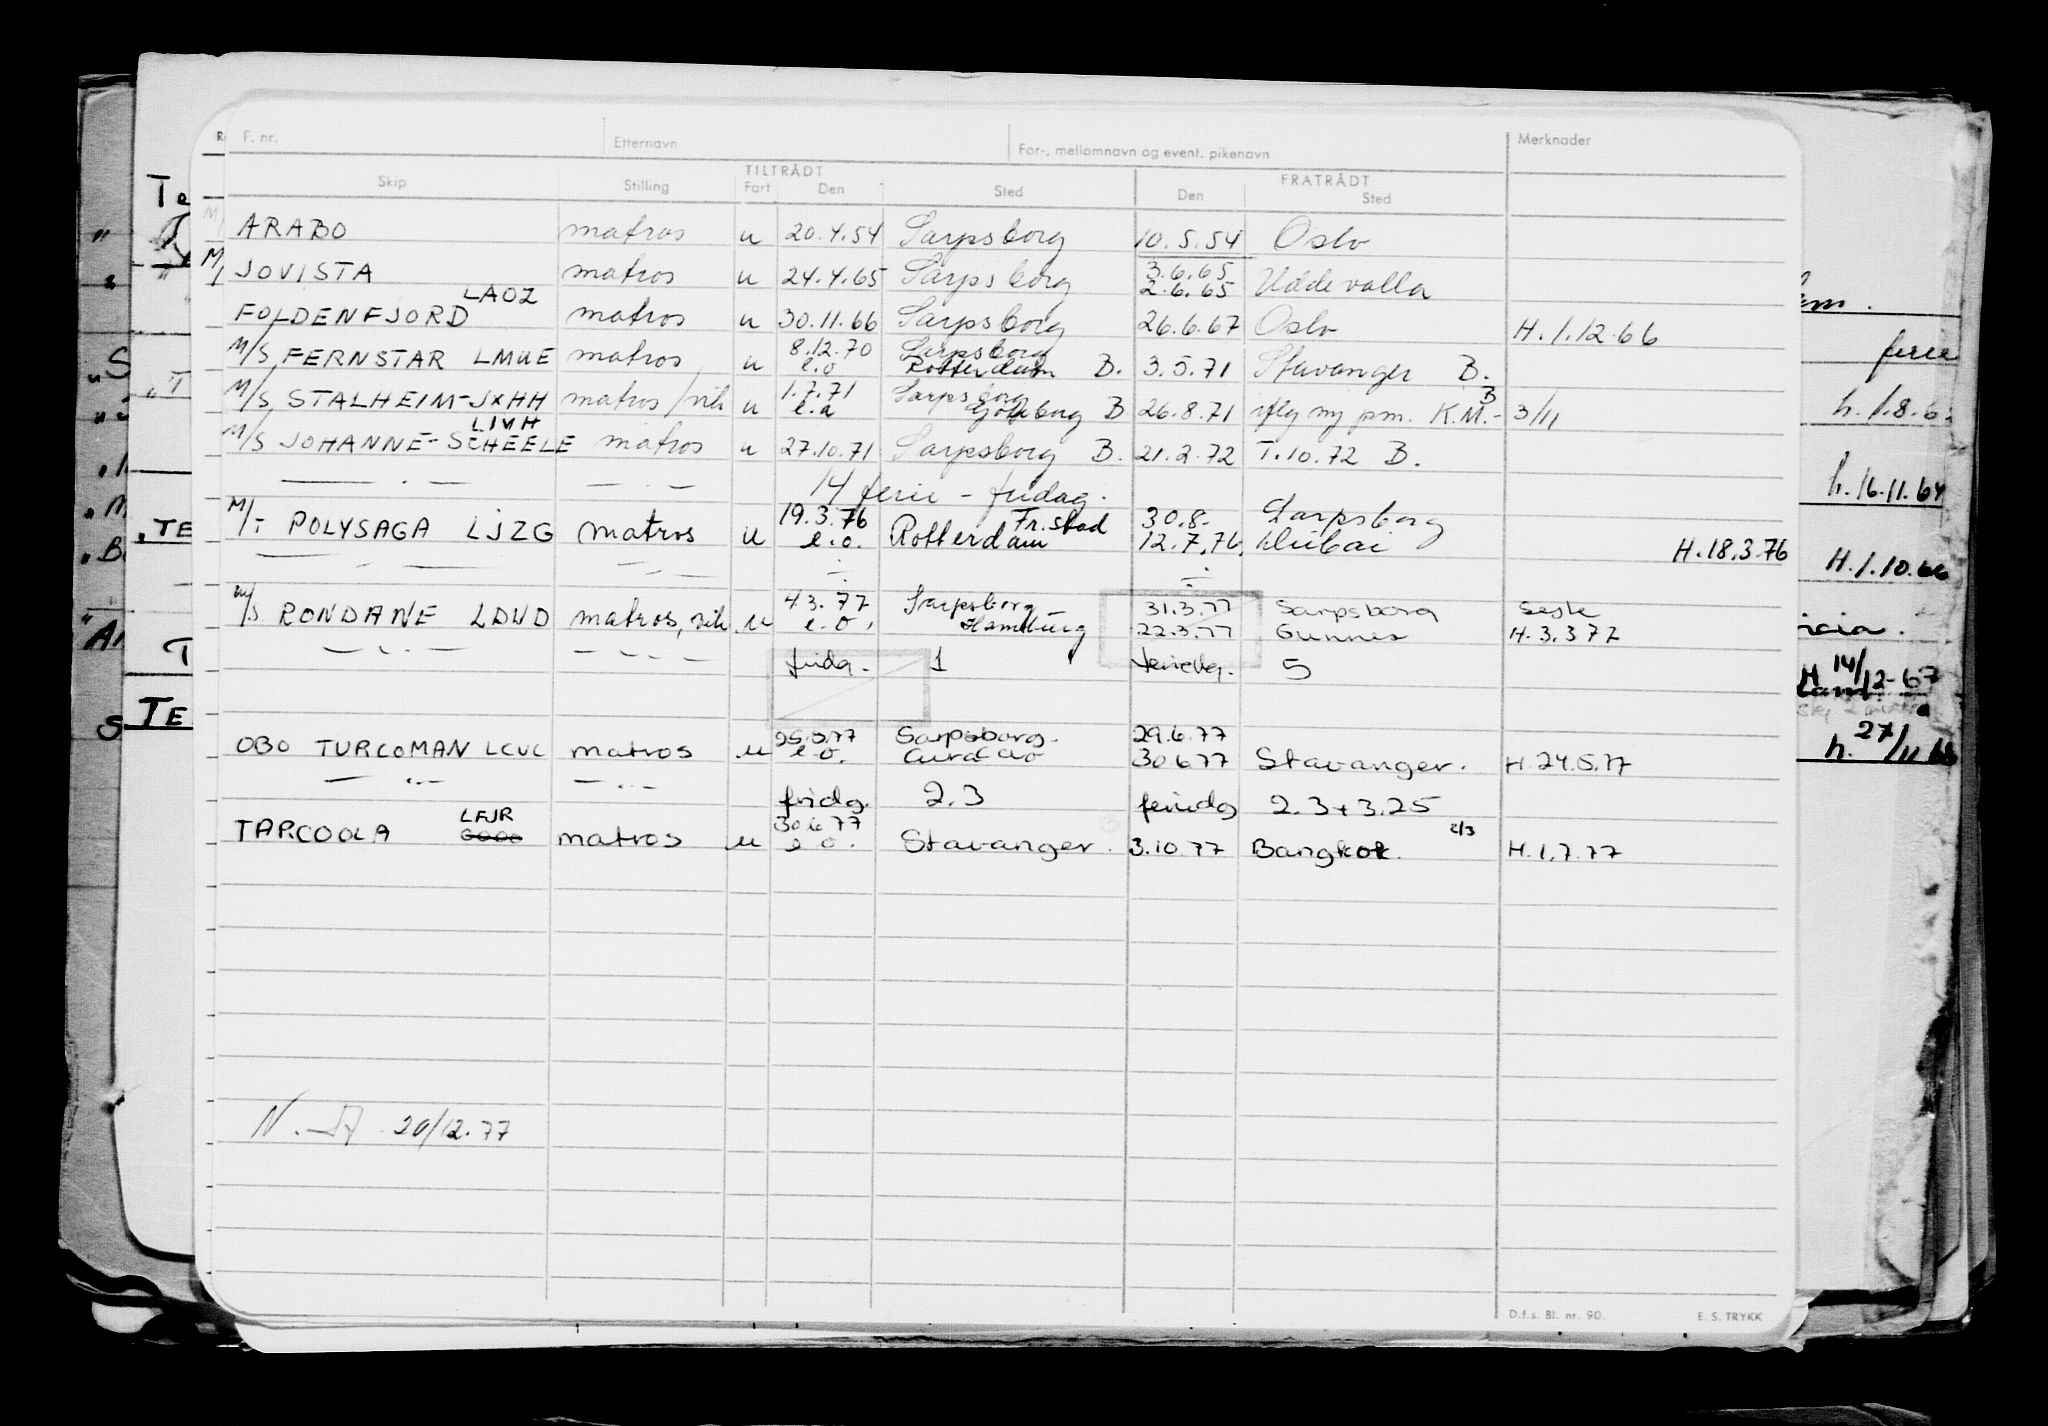 F. nr. Etternavn For-, mellomnavn og event. pikenavn Merknader
TILTRÅDT FRATRÅDT
Skip Stilling Fart Den Sted Den Sted
M/ ARABO matros u 20.4.54 Sarpsborg 10.5.54 Oslo
M/ JOVISTA matros u 24.4.65 Sarpsborg 3.6.65 2.6.65 Uddevalla
LAOZ
FOLDENFJORD matros u 30.11.66 Sarpsborg 26.6.67 Oslo H.1.12.66
8.12.70 Sarpsborg
M/S FERNSTAR LMUE matros u e.o Rotterdam B. 3.5.71 Stavanger B.
1.7.71 Sarpsborg B
M/S STALHEIM-JXHH matros/vik u e.a Göteborg B 26.8.71 iflg ny pm. K.M.- 3/11
LIVH
M/S JOHANNE-SCHEELE matros u 27.10.71 Sarpsborg B. 21.2.72 T.10.72 B.
— . — — . — 14 ferie - fridag.
19.3.76 Fr.stad 30.8. Sarpsborg
M/T POLYSAGA LJZG matros u e.o. Rotterdam 12.7.76, Dubai H.18.3.76
4.3.77 Sarpsborg 31.3.77 Sarpsborg
M/S RONDANE LDWD matros, vik u e.o. Hamburg 22.3.77 Gunnes H.3.377
fridg. 1 feriedg. 5
25.5.77 Sarpsborg. 29.6.77
OBO TURCOMAN LCVC matros u e.o. Curacao 30677 Stavanger. H.24.5.77
fridg. 2.3 feriedg 2.3+3.25
LFJR 30.6.77 2/3
TARCOOLA matros u e o. Stavanger. 3.10.77 Bangkok. H.1.7.77
N. 20/12.77
D.f.s. Bl. nr. 90. E. S. TRYKK
ferie
h.1.8.6
h.16.11.64
H.1.10.66
H 14/12-67
h. 27/11
TE
TE